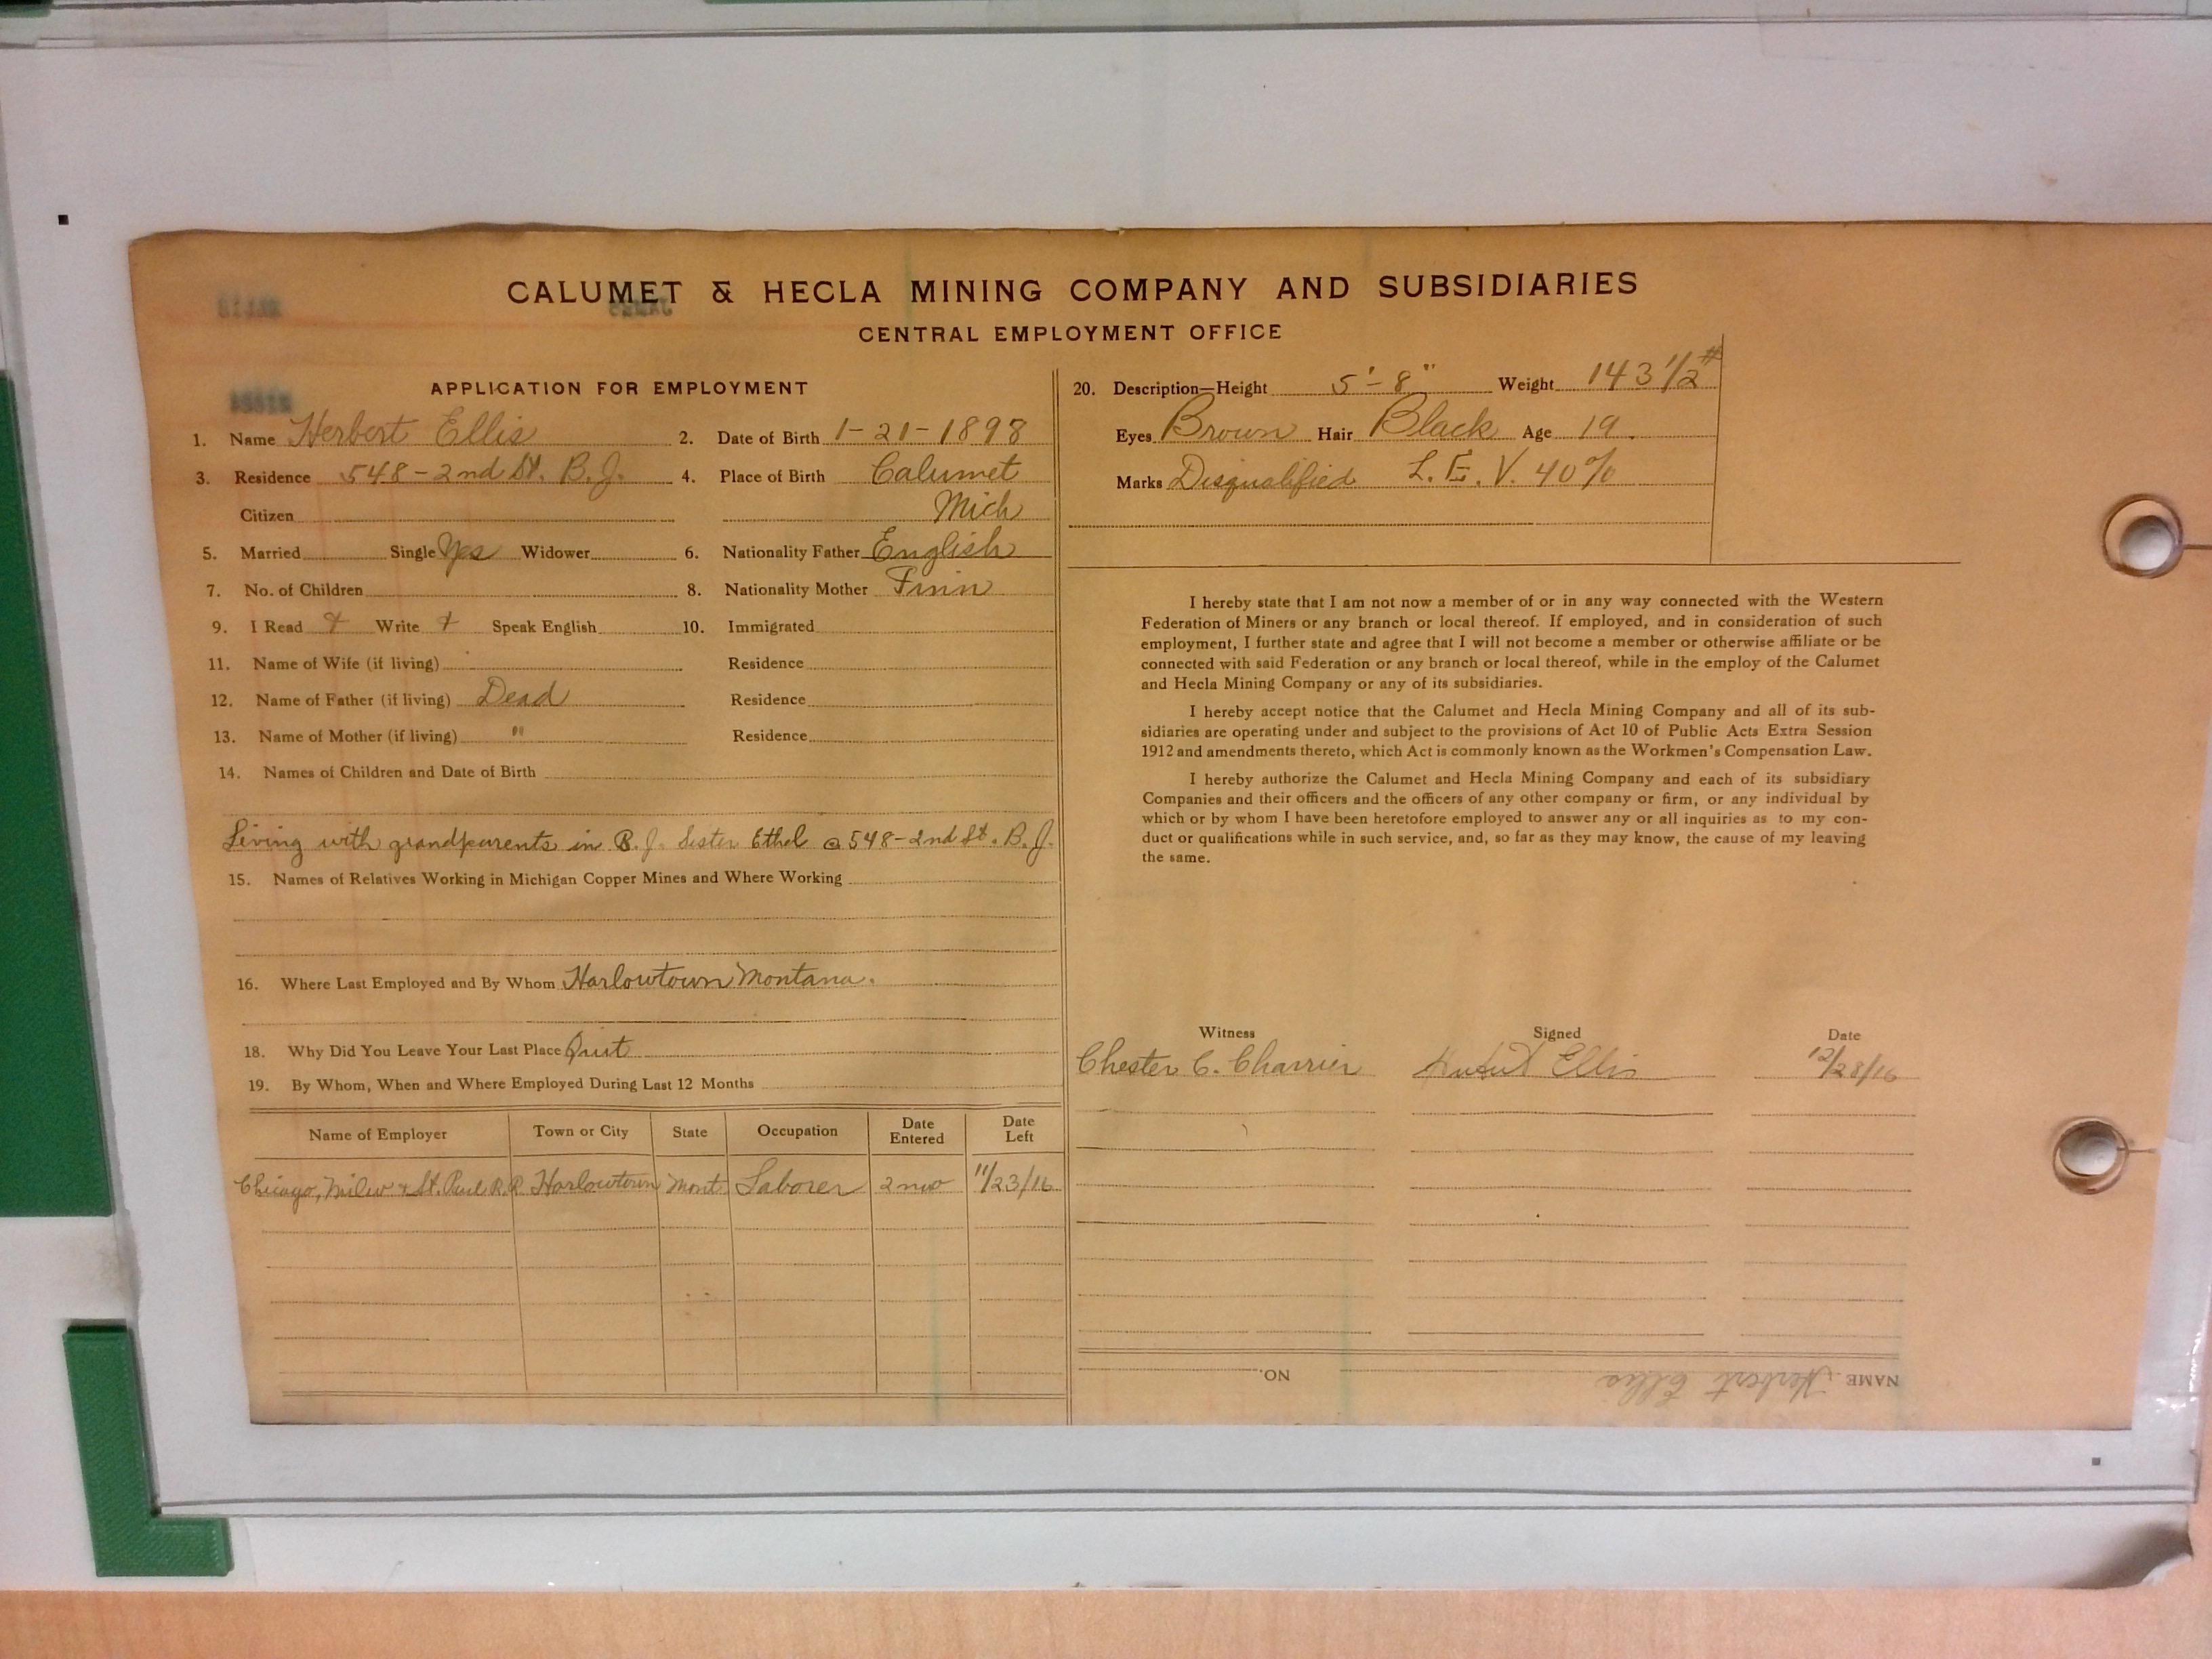 CALUMET & HECLA MINING COMPANY AND SUBSIDIARIES
CENTRAL EMPLOYMENT OFFICE
APPLICATION FOR EMPLOYMENT
1. Name Herbert Ellis 2. Date of Birth 1-21-1898
3. Residence 548-2nd St. B.J. 4. Place of Birth Calumet
Citizen Mich
5. Married Single Yes Widower 6. Nationality Father English
7. No. of Children 8. Nationality Mother Finn
9. I Read + Write + Speak English 10. Immigrated
11. Name of Wife (if living) Residence
12. Name of Father (if living) Dead Residence
13. Name of Mother (if living) " Residence
14. Names of Children and Date of Birth
Living with grandparents in B.J. Sister Ethel @ 548-2nd St. B.J.
15. Names of Relatives Working in Michigan Copper Mines and Where Working
16. Where Last Employed and By Whom Harlowtown Montana.
18. Why Did You Leave Your Last Place Quit
19. By Whom, When and Where Employed During Last 12 Months
Name of Employer Town or City State Occupation Date Entered Date Left
Chicago, Milw & St. Paul R.R. Harlowtown Mont. Laborer 2 mo 11/23/16
20. Description—Height 5'-8" Weight 143 1/2 #
Eyes Brown Hair Black Age 19.
Marks Disqualified L.E.V. 40%
I hereby state that I am not now a member of or in any way connected with the Western
Federation of Miners or any branch or local thereof. If employed, and in consideration of such
employment, I further state and agree that I will not become a member or otherwise affiliate or be
connected with said Federation or any branch or local thereof, while in the employ of the Calumet
and Hecla Mining Company or any of its subsidiaries.
I hereby accept notice that the Calumet and Hecla Mining Company and all of its sub-
sidiaries are operating under and subject to the provisions of Act 10 of Public Acts Extra Session
1912 and amendments thereto, which Act is commonly known as the Workmen's Compensation Law.
I hereby authorize the Calumet and Hecla Mining Company and each of its subsidiary
Companies and their officers and the officers of any other company or firm, or any individual by
which or by whom I have been heretofore employed to answer any or all inquiries as to my con-
duct or qualifications while in such service, and, so far as they may know, the cause of my leaving
the same.
Witness Signed Date
Chester C. Charrier Herbert Ellis 12/28/16
NAME Herbert Ellis NO.